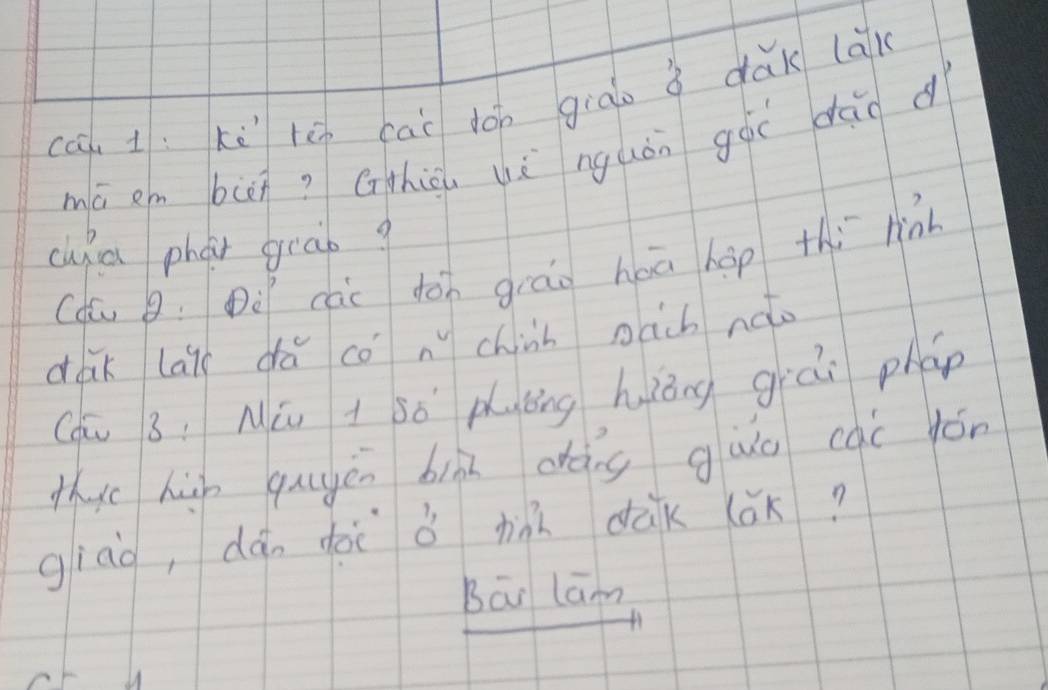 Câu 1: Kể tên các tôn giáo ở đăk lăk
mà em biết? Gthiệu về nguồn gốc đặc đ'
của phật giáo?
Câu 2: Để các tôn giáo hoà hợp thì tỉnh
đăk lăk đã có n~ chính sách nào
Câu 3: Nêu 1 số phương hướng giải pháp
thực hiện quyền bình đẳng giữa các tôn
giáo, dân tộc ở tỉnh đăk lăk?
Bài làm